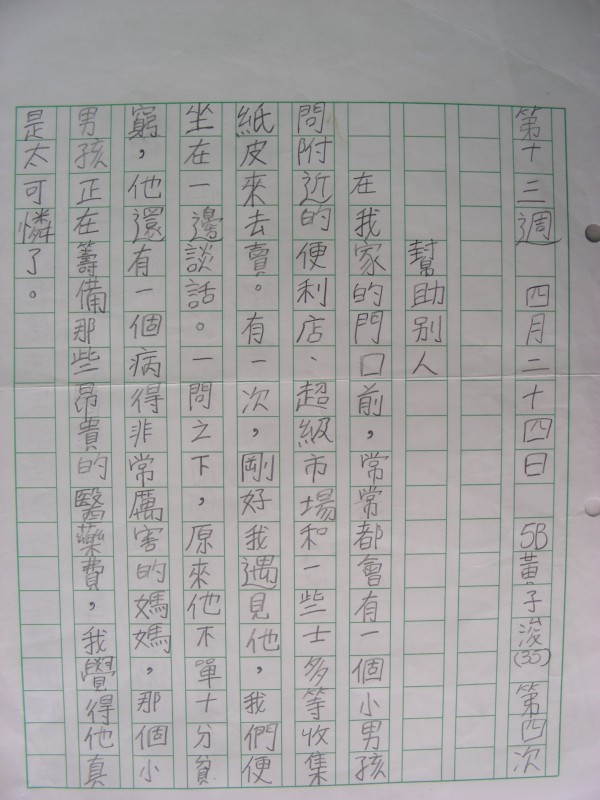 第十三週 四月二十四日 5B黃子浚(35) 第四次
幫助別人
在我家的門口前，常常都會有一個小男孩
問附近的便利店、超級市場和一些士多等收集
紙皮來去賣。有一次，剛好我遇見他，我們便
坐在一邊談話。一問之下，原來他不單十分貧
窮，他還有一個病得非常厲害的媽媽，那個小
男孩正在籌備那些昂貴的醫藥費，我覺得他真
是太可憐了。